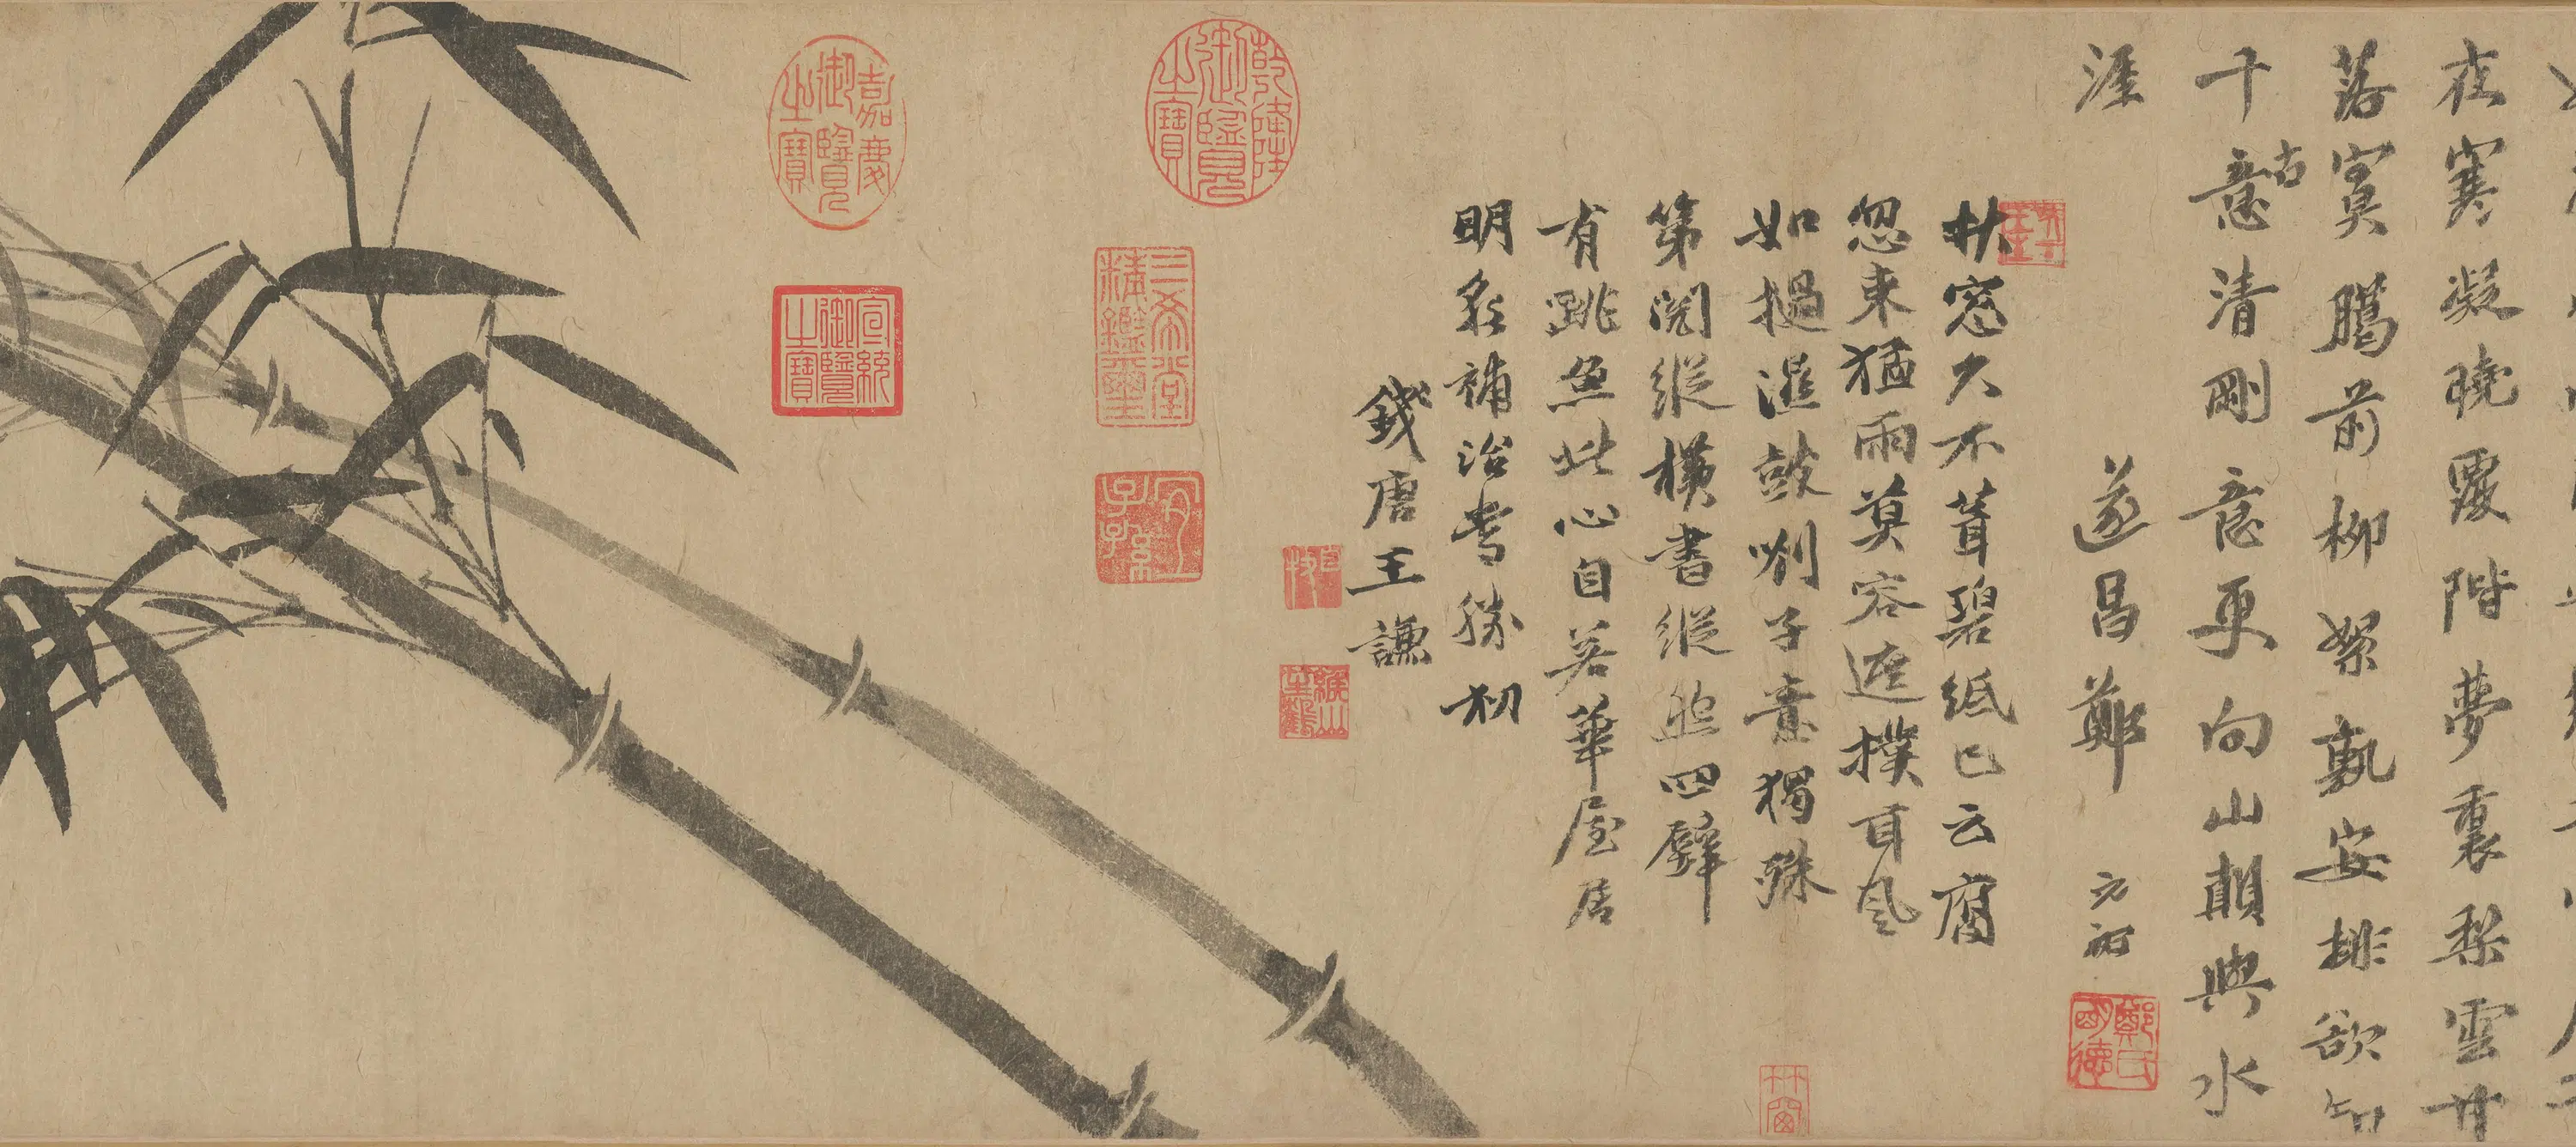 在寒凝曉露階夢裏梨雲廿
落寞腸前柳絮孰安排欲知
千古意清剛意更向山顛與水
涯
遂昌鄭元祐
鄭氏明德
窓久不葺碧紙已云腐
忽東猛雨莫容遮撲耳風
如撾濕鼓喇子意獨殊
第閱縱橫書縱四壁
有跳魚此心自若華屋居
明發補治嘗勝初
錢唐王謙
乾隆御覽之寶
三希堂精鑑璽
宜子孫
嘉慶御覽之寶
宣統御覽之寶